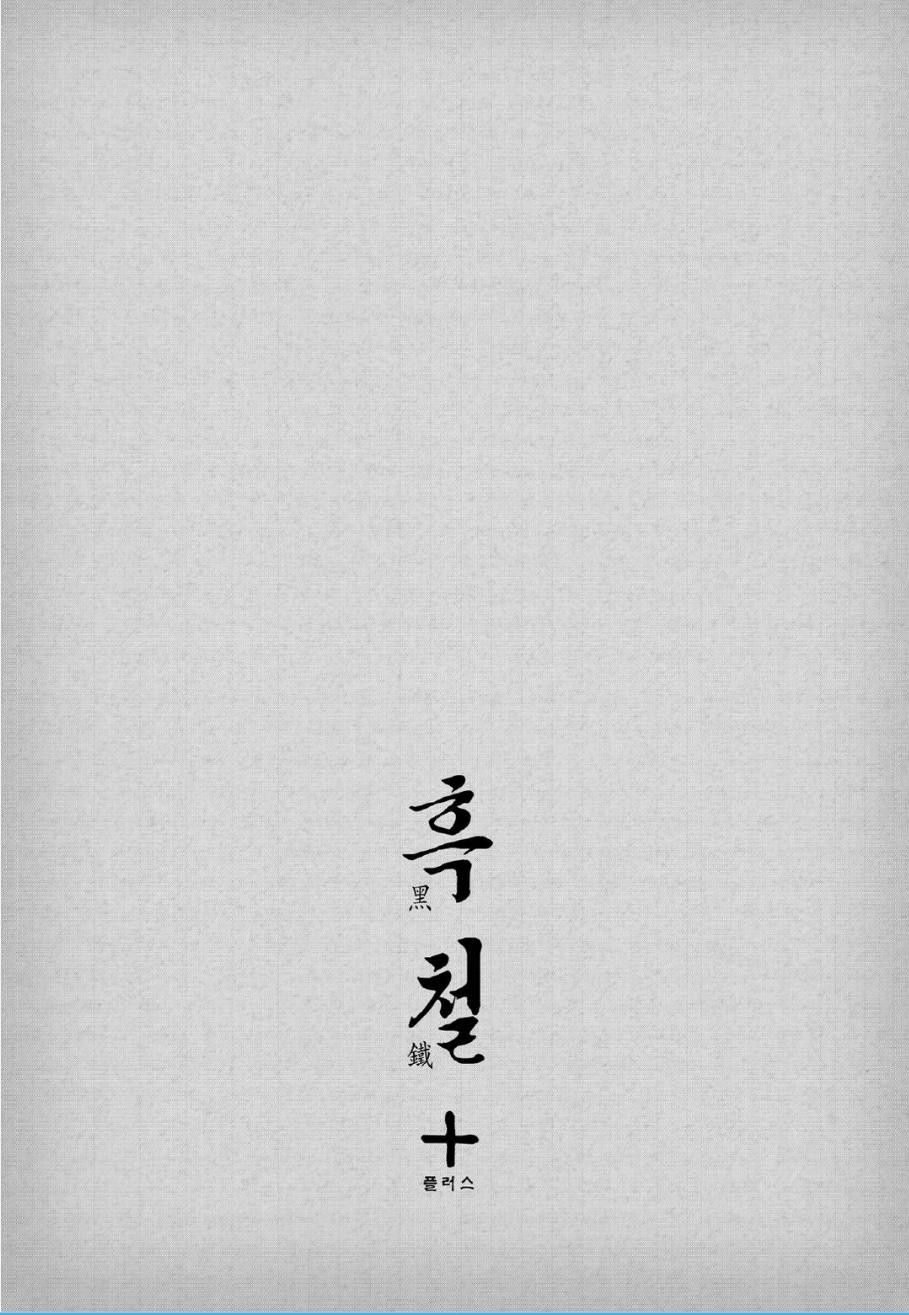 흑
黑
철
鐵
+
플러스